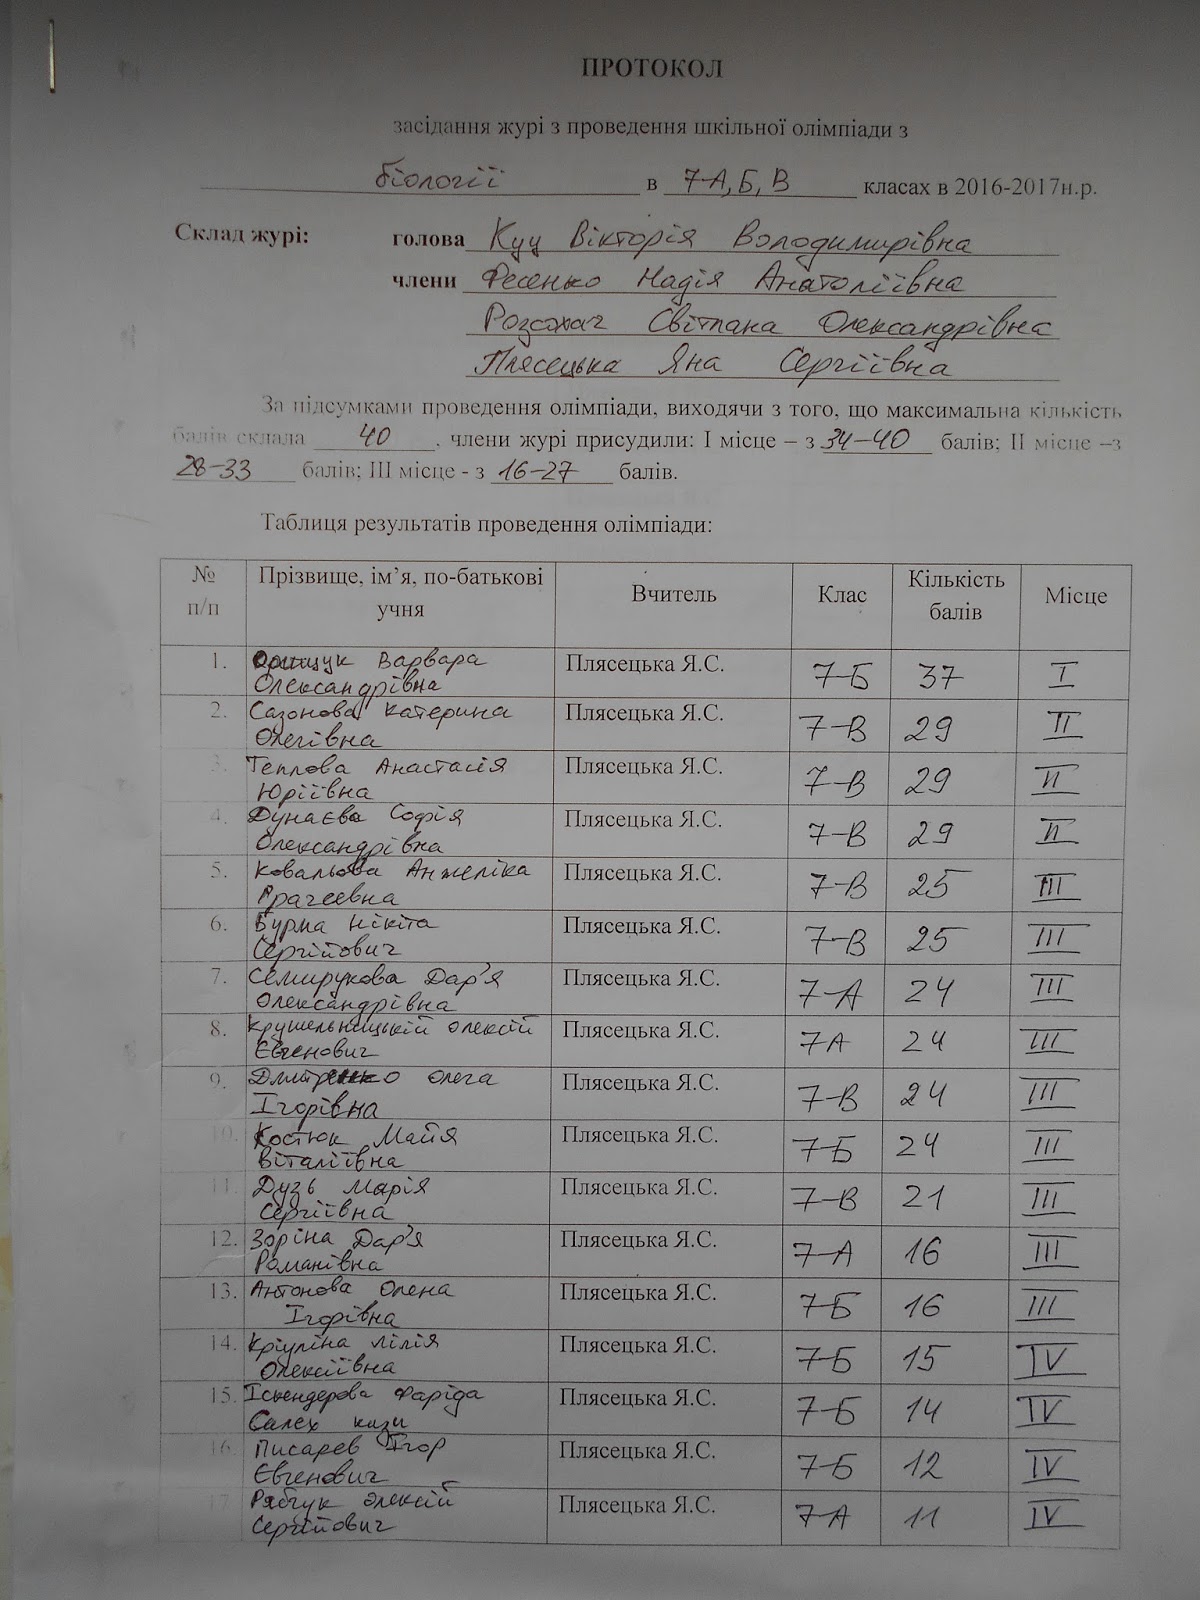 ПРОТОКОЛ
засідання журі з проведення шкільної олімпіади з
біології в 7-А, Б, В класах в 2016-2017н.р.
Склад журі: голова Куц Вікторія Володимирівна
члени Фесенко Надія Анатоліївна
Розсохач Світлана Олександрівна
Плясецька Яна Сергіївна
За підсумками проведення олімпіади, виходячи з того, що максимальна кількість
балів склала 40, члени журі присудили: І місце – з 34-40 балів; ІІ місце –з
28-33 балів; ІІІ місце - з 16-27 балів.
Таблиця результатів проведення олімпіади:
№ Прізвище, ім’я, по-батькові Вчитель Клас Кількість Місце
п/п учня балів
1. Варвара Плясецька Я.С. 7-Б 37 I
Олександрівна
2. Сазонова Катерина Плясецька Я.С. 7-В 29 II
Олегівна
3. Теплова Анастасія Плясецька Я.С. 7-В 29 II
Юріївна
4. Дунаєва Софія Плясецька Я.С. 7-В 29 II
Олександрівна
5. Ковальова Анжеліка Плясецька Я.С. 7-В 25 III
6. Бурма Нікіта Плясецька Я.С. 7-В 25 III
Сергійович
7. Семирукова Дар'я Плясецька Я.С. 7-А 24 III
Олександрівна
8. Крушельницький Олексій Плясецька Я.С. 7А 24 III
Євгенович
9. Дмитренко Ольга Плясецька Я.С. 7-В 24 III
Ігорівна
10. Костюк Майя Плясецька Я.С. 7-Б 24 III
Віталіївна
11. Дузь Марія Плясецька Я.С. 7-В 21 III
Сергіївна
12. Зоріна Дар'я Плясецька Я.С. 7-А 16 III
Романівна
13. Антонова Олена Плясецька Я.С. 7-Б 16 III
Ігорівна
14. Кріуліна Лілія Плясецька Я.С. 7-Б 15 IV
Олексіївна
15. Іскендерова Фаріда Плясецька Я.С. 7-Б 14 IV
Салех кизи
16. Писарев Ігор Плясецька Я.С. 7-Б 12 IV
Євгенович
17. Рябчук Олексій Плясецька Я.С. 7-А 11 IV
Сергійович